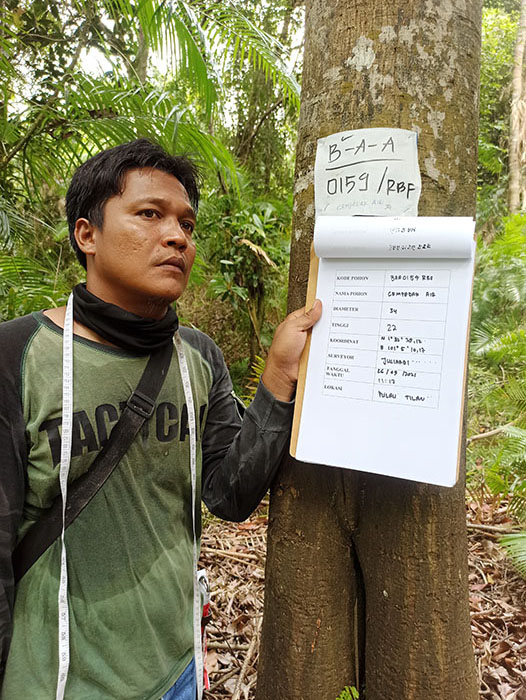 B-A-A
0159/RBF
CEMPEDAK AIR
KODE POHON BAA0159 RBF
NAMA POHON CEMPEDAK AIR
DIAMETER 54
TINGGI 22
KOORDINAT
SURVEYOR JULIANDI
TANGGAL WAKTU 26/03/2021
11:17
LOKASI PULAU TILAN
TACTICAL